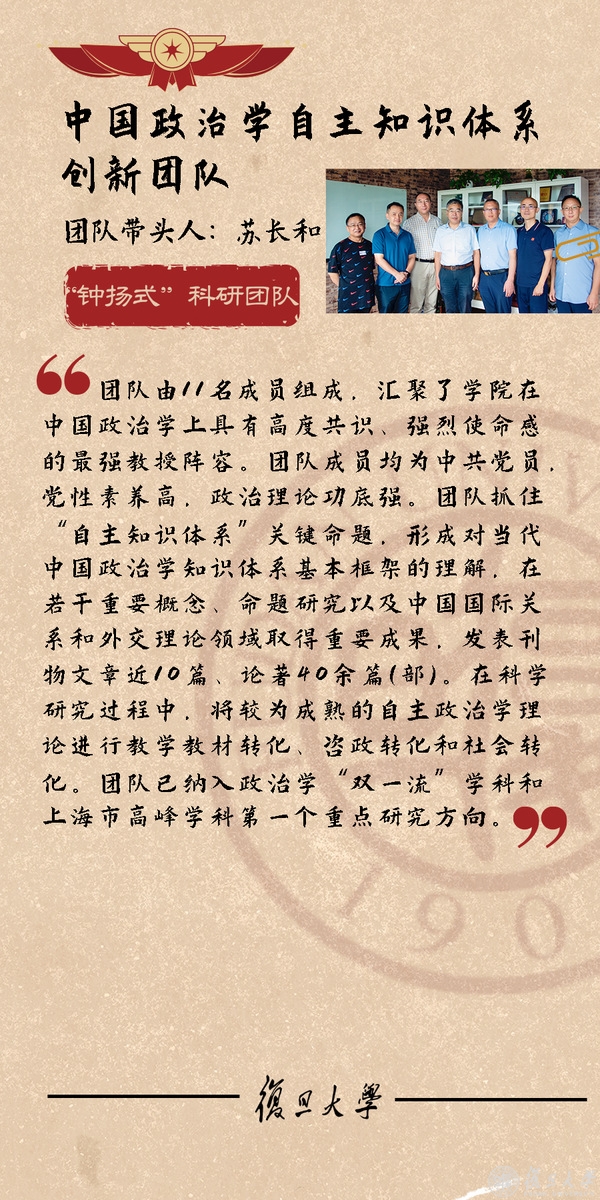 中国政治学自主知识体系
创新团队
团队带头人：苏长和
“钟扬式”科研团队
团队由11名成员组成，汇聚了学院在
中国政治学上具有高度共识、强烈使命感
的最强教授阵容。团队成员均为中共党员，
党性素养高，政治理论功底强。团队抓住
“自主知识体系”关键命题，形成对当代
中国政治学知识体系基本框架的理解，在
若干重要概念、命题研究以及中国国际关
系和外交理论领域取得重要成果，发表刊
物文章近10篇、论著40余篇(部)。在科学
研究过程中，将较为成熟的自主政治学理
论进行教学教材转化、咨政转化和社会转
化。团队已纳入政治学“双一流”学科和
上海市高峰学科第一个重点研究方向。
190
復旦大學